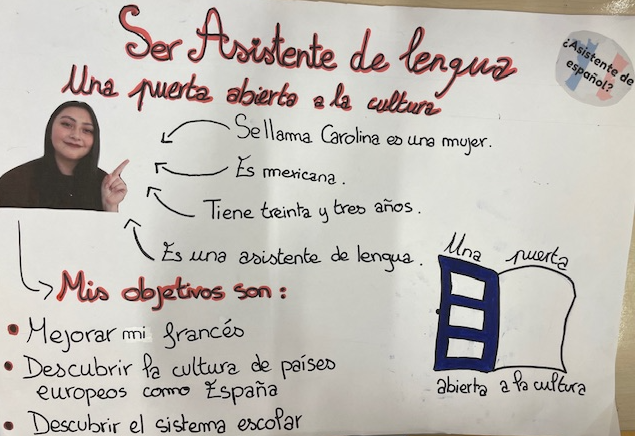 Ser Asistente de lengua
Una puerta abierta a la cultura
¿Asistente de
español?
Se llama Carolina es una mujer.
Es mexicana.
Tiene treinta y tres años.
Es una asistente de lengua.
Mis objetivos son:
• Mejorar mi francés
• Descubrir la cultura de países
europeos como España
• Descubrir el sistema escolar
Una puerta
abierta a la cultura